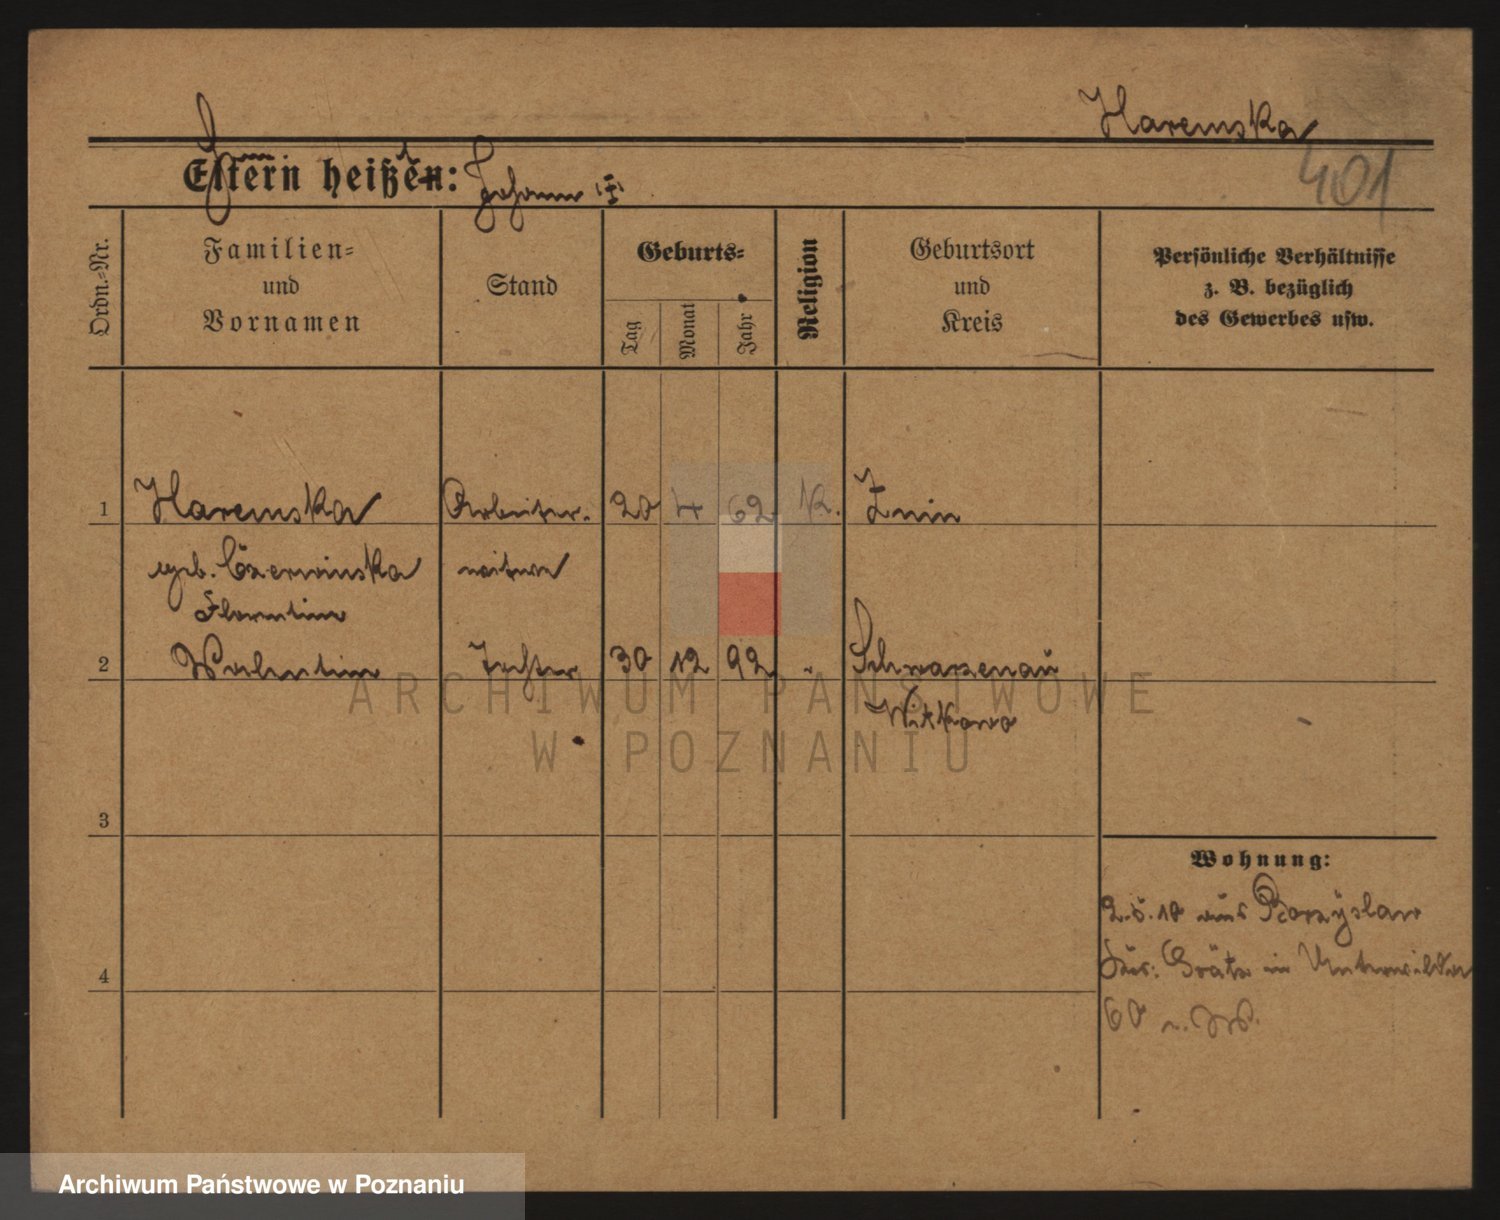 Haremska
401
Eltern heißen: Johann
Ordn.-Nr.
Familien-
und
Vornamen
Stand
Geburts-
Tag
Monat
Jahr
Religion
Geburtsort
und
Kreis
Persönliche Verhältnisse
z. B. bezüglich
des Gewerbes usw.
1 Haremska Arbeiter- 20 4 62 K. Znin
geb. Czerwinska witwe
Florentine
2 Valentine Tochter 30 12 92 " Schwarzenau
Witkowo
3
4
Wohnung:
2.5.10 aus Borzyslaw
Kr. Grätz in Unterwilda
60 n. W.
ARCHIWUM PAŃSTWOWE
W POZNANIU
Archiwum Państwowe w Poznaniu